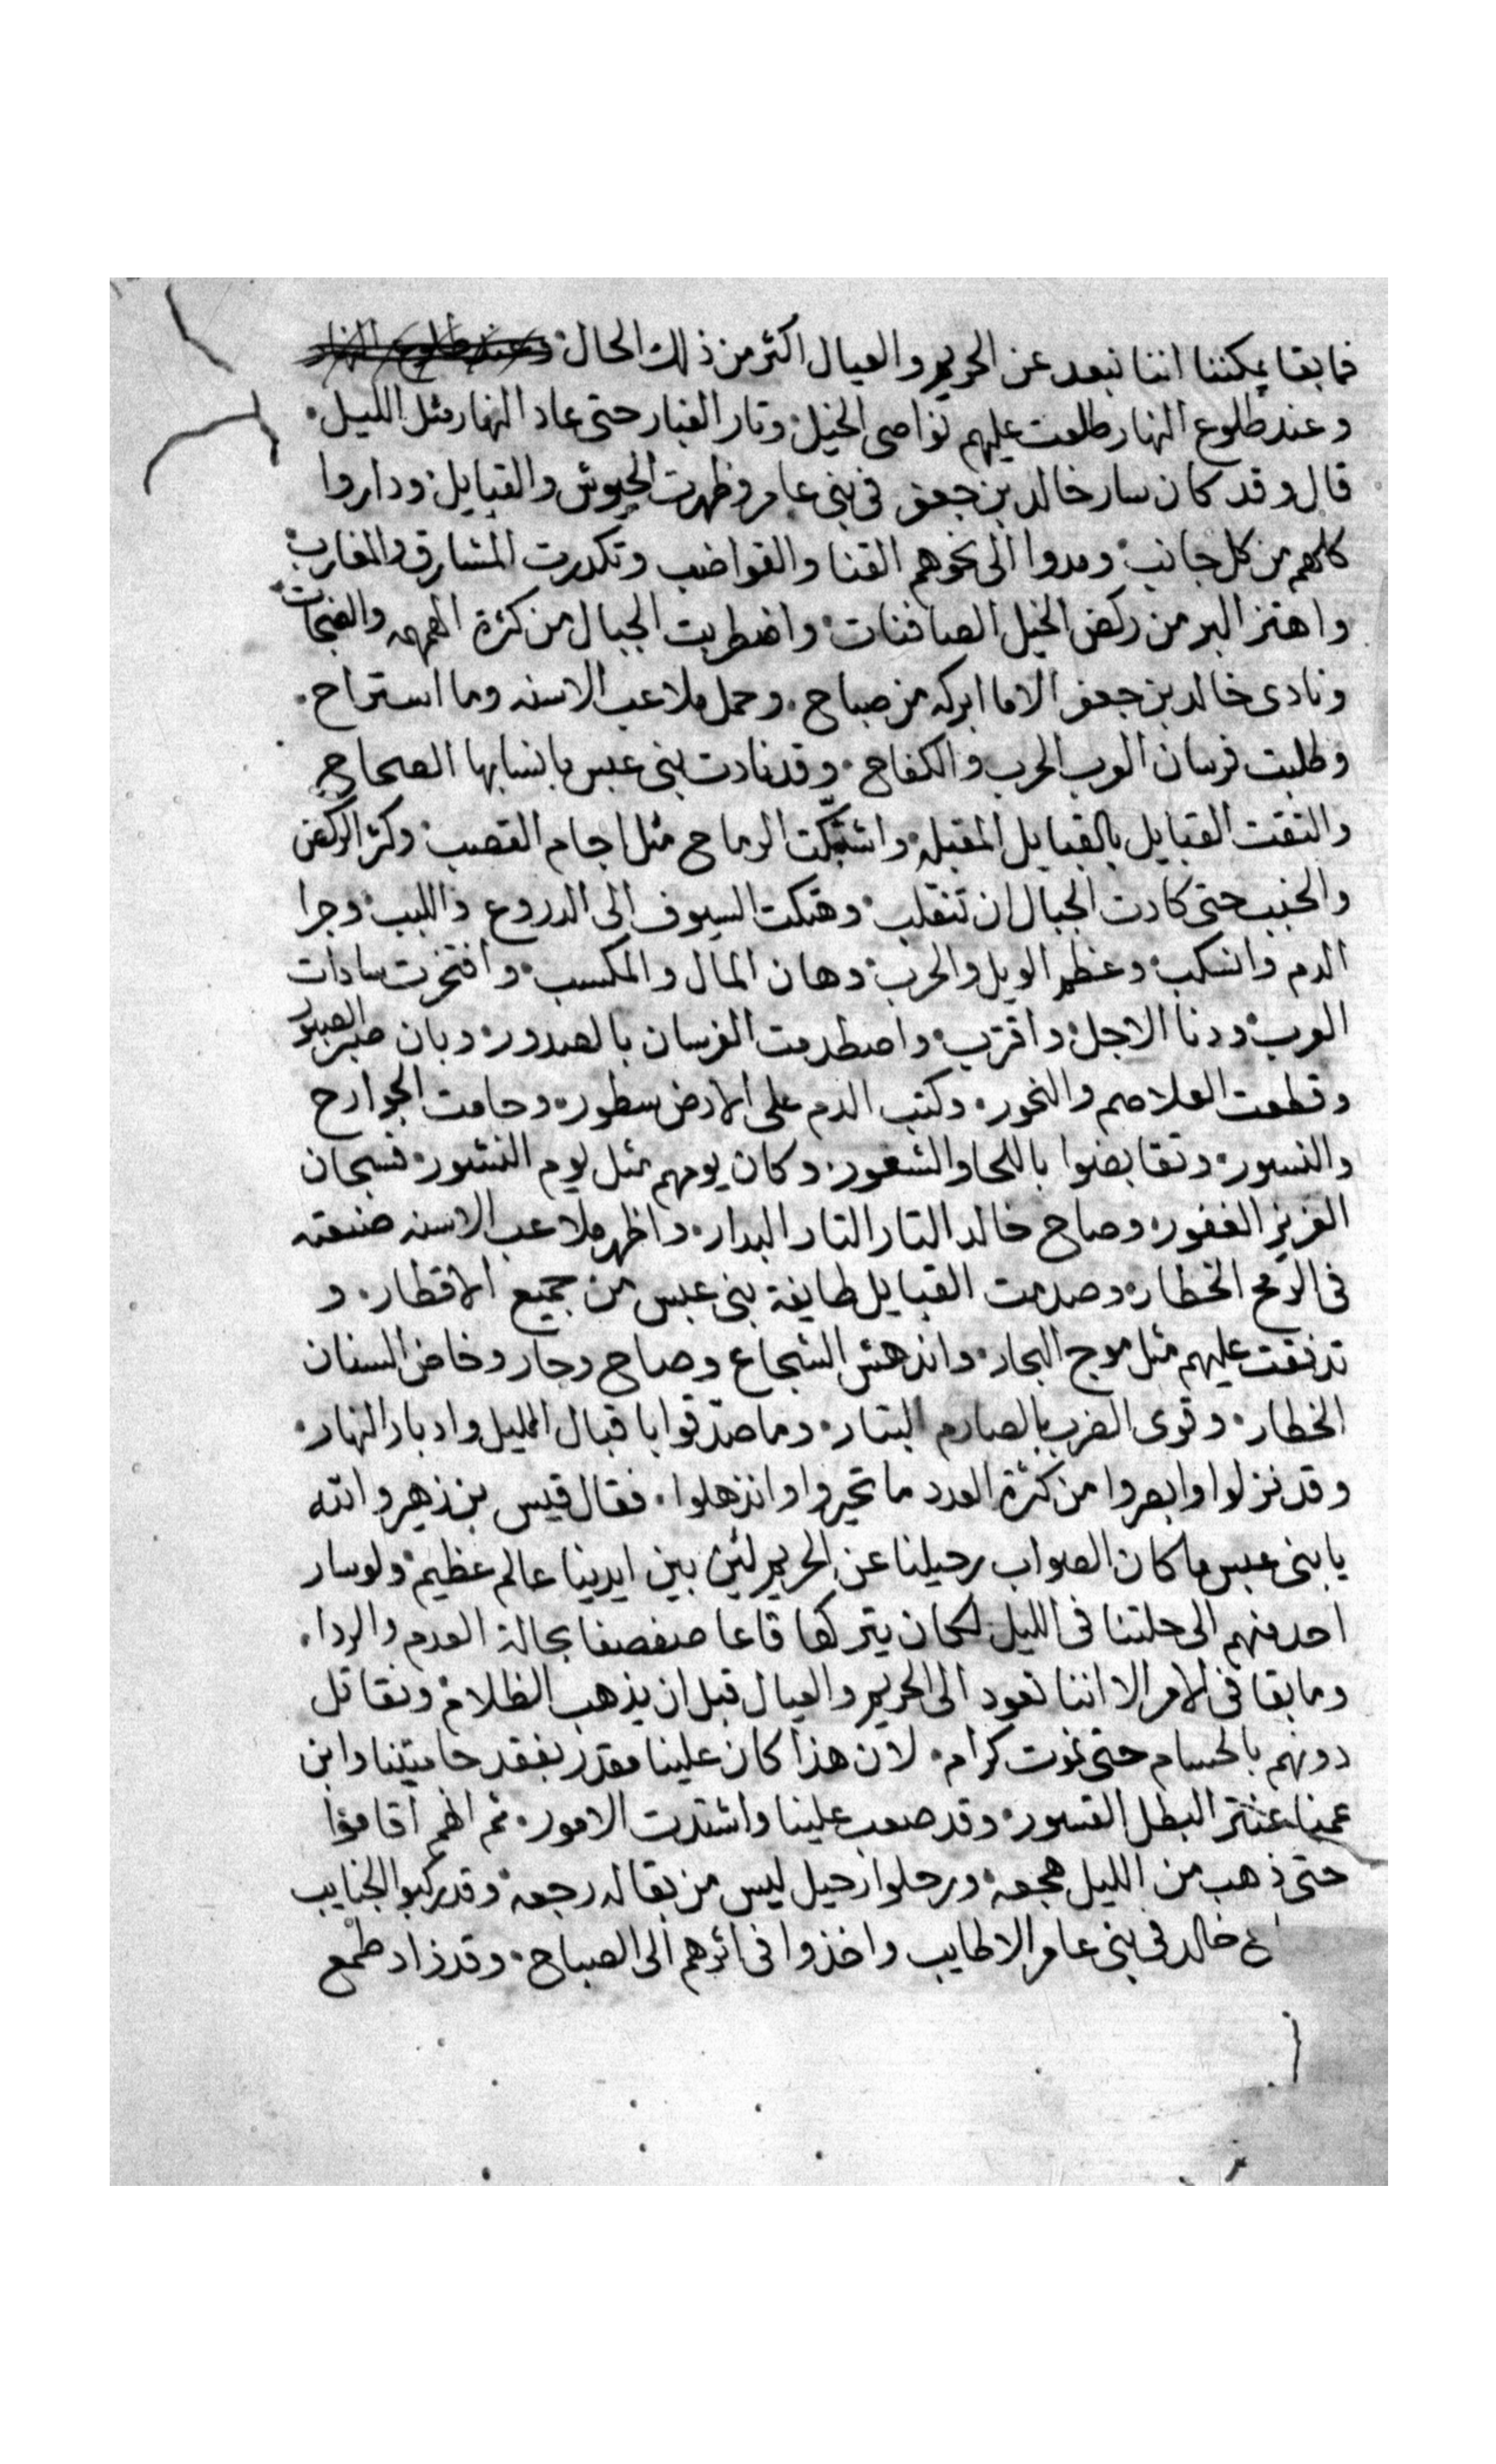 فما بقا يمكننا اننا نبعد عن الحريم والعيال اكثر من ذلك الحال وعند طلوع النهار
وعند طلوع النهار طلعت عليهم نواصى الخيل وثار الغبار حتى عاد النهار مثل الليل
قال وقد كان سار خالد بن جعفر فى بنى عامر وظهرت الجيوش والقبايل وداروا
كلهم من كل جانب ومدوا الى نحوهم القنا والقواضب وتكدرت المشارق والمغارب
واهتز البر من ركض الخيل الصافنات واضطربت الجبال من كثرة الهمهمه والضجات
ونادى خالد بن جعفر الا ما ابركه من صباح وحمل ملاعب الاسنه وما استراح
وطلبت فرسان العرب الحرب والكفاح وقد نادت بنى عبس بانسابها الصحاح
والتقت القبايل بالقبايل المقبله واشتبكت الرماح مثل اجام القصب وكثر الركض
والخبب حتى كادت الجبال ان تنقلب وهتكت السيوف الى الدروع واللبب وجرا
الدم وانسكب وعظم الويل والحرب وهان المال والمكسب وافتخرت سادات
العرب ودنا الاجل واقترب واصطدمت الفرسان بالصدور وبان صبر الصبور
وقطعت الغلاصم والنحور وكتب الدم على الارض سطور وحامت الجوارح
والنسور وتقابضوا باللحا والشعور وكان يومهم مثل يوم النشور فسبحان
العزيز الغفور وصاح خالد التار التار البدار واظهر ملاعب الاسنه صنعته
فى الرمح الخطار وصدمت القبايل طايفة بنى عبس من جميع الاقطار و
تدفقت عليهم مثل موج البحار واندهش الشجاع وصاح وجار وخاض السنان
الخطار وقوى الضرب بالصارم البتار وما صدقوا باقبال الليل وادبار النهار
وقد نزلوا وابصروا من كثرة العدد ما تحيروا وانذهلوا فقال قيس بن زهير والله
يا بنى عبس ما كان الصواب رحيلنا عن الحريم لئن بين ايدينا عالم عظيم ولو سار
احد منهم الى حلتنا فى الليل لكان يتركها قاعا صفصفا بحالة العدم والردا
وما بقا فى الامر الا اننا نعود الى الحريم والعيال قبل ان يذهب الظلام ونقاتل
دونهم بالحسام حتى نموت كرام لان هذا كان علينا مقدر بفقد حاميتنا وابن
عمنا عنتر البطل القسور وقد صعب علينا واشتدت الامور ثم انهم اقاموا
حتى ذهب من الليل هجعه ورحلوا رحيل ليس من بقا له رجعه وقد ركبوا الجنايب
خالد فى بنى عامر الاطايب واخذوا فى اثرهم الى الصباح وقد زاد طمع